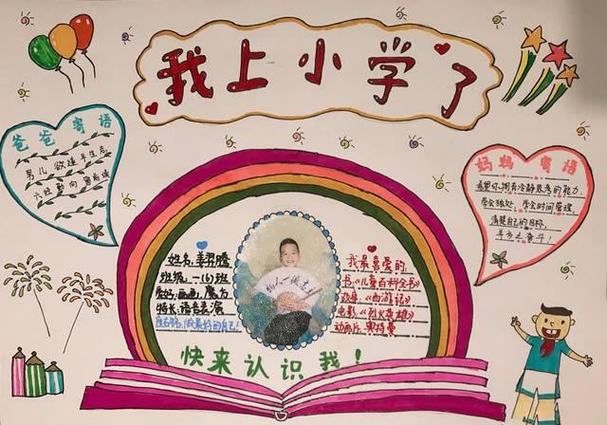 我上小学了
爸爸寄语
男儿欲遂平生志
六经勤向窗前读
妈妈寄语
希望你拥有冷静思考的能力
学会独处，学会时间管理
清楚自己的目标
并为之奋斗！
姓名：
班级：一(6)班
爱好：画画，魔方
特长：语言表演
座右铭：做最好的自己！
我最喜爱的
书：《儿童百科全书》
故事：《西游记》
电影：《烈火英雄》
动画片：奥特曼
快来认识我！